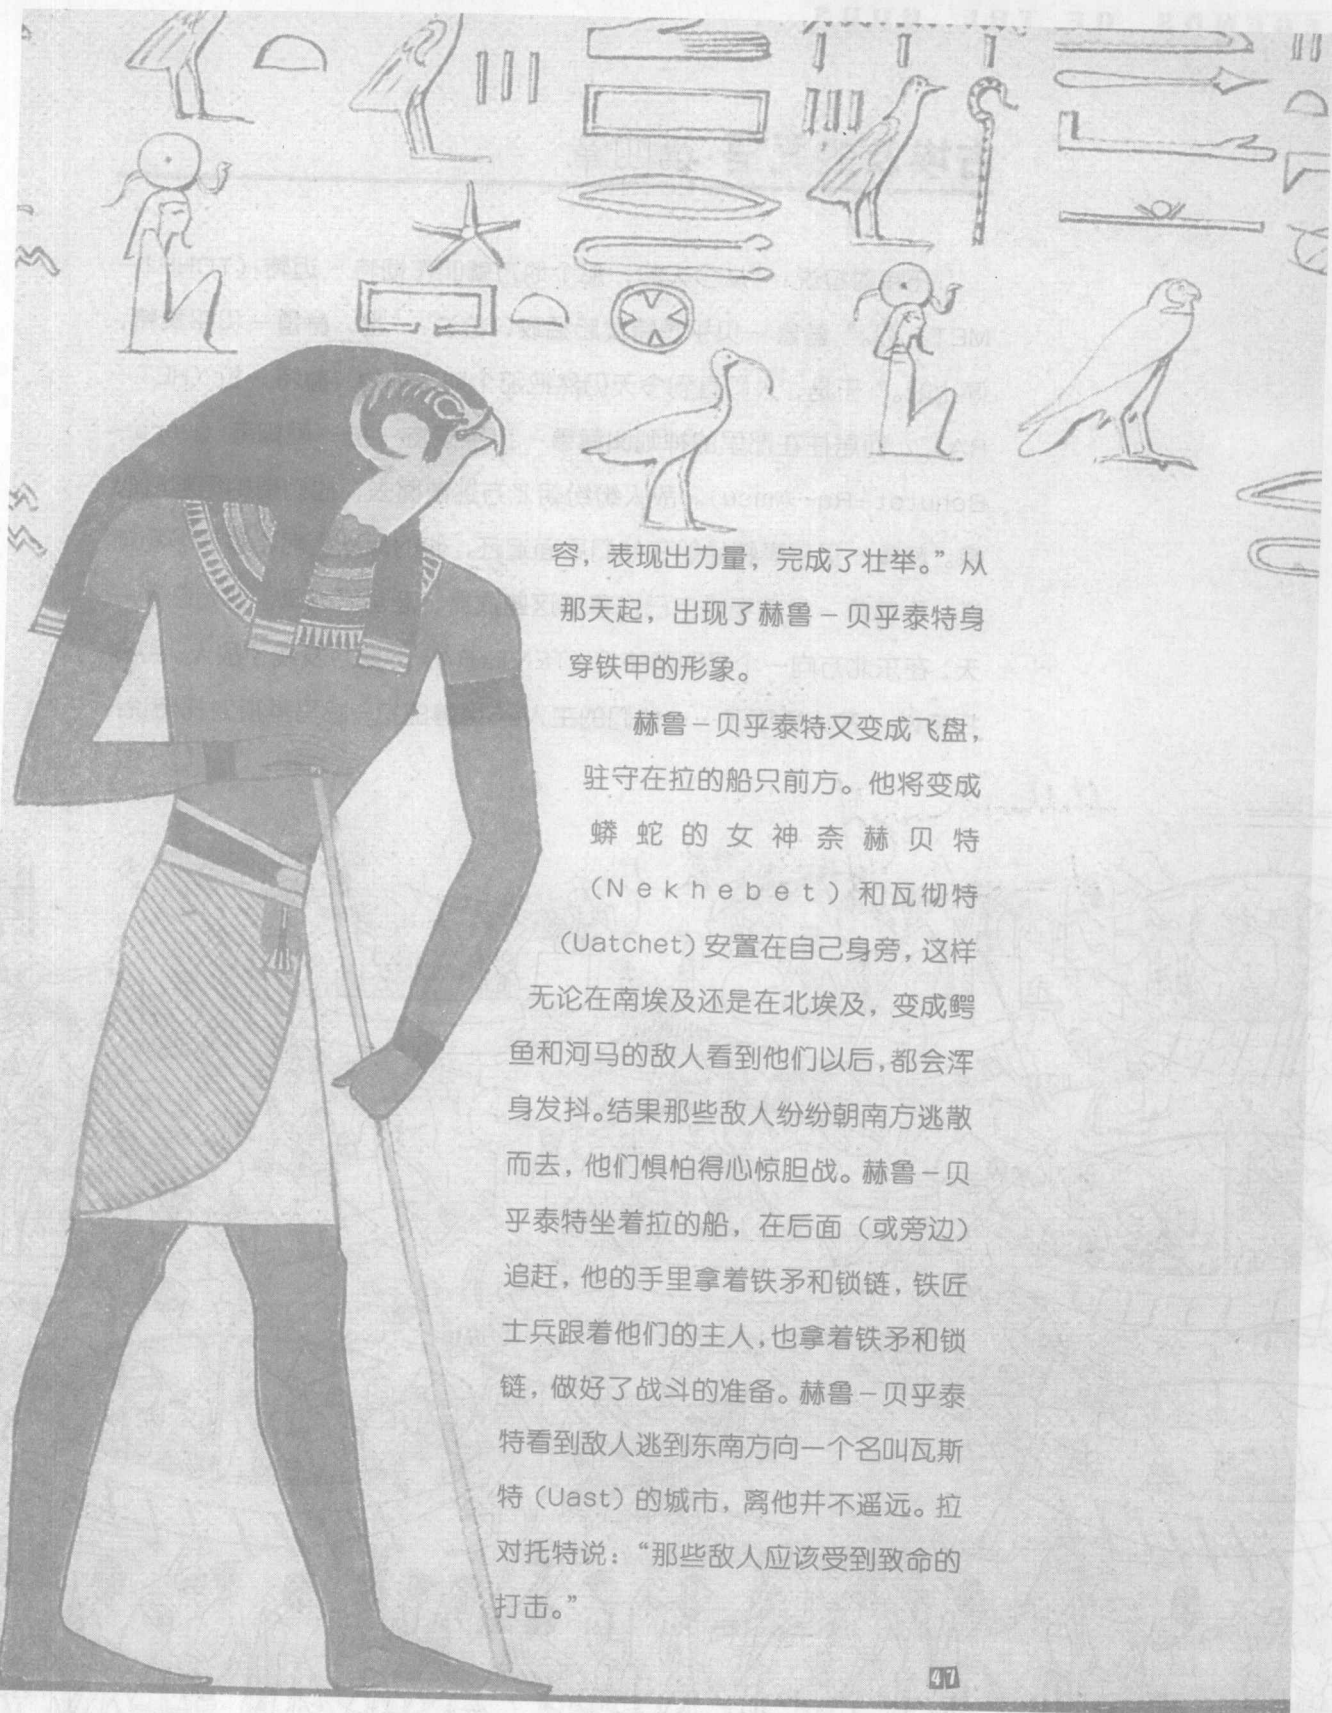 容，表现出力量，完成了壮举。”从
那天起，出现了赫鲁－贝乎泰特身
穿铁甲的形象。
赫鲁－贝乎泰特又变成飞盘，
驻守在拉的船只前方。他将变成
蟒蛇的女神奈赫贝特
（Nekhebet）和瓦彻特
（Uatchet）安置在自己身旁，这样
无论在南埃及还是在北埃及，变成鳄
鱼和河马的敌人看到他们以后，都会浑
身发抖。结果那些敌人纷纷朝南方逃散
而去，他们惧怕得心惊胆战。赫鲁－贝
乎泰特坐着拉的船，在后面（或旁边）
追赶，他的手里拿着铁矛和锁链，铁匠
士兵跟着他们的主人，也拿着铁矛和锁
链，做好了战斗的准备。赫鲁－贝乎泰
特看到敌人逃到东南方向一个名叫瓦斯
特（Uast）的城市，离他并不遥远。拉
对托特说：“那些敌人应该受到致命的
打击。”
47